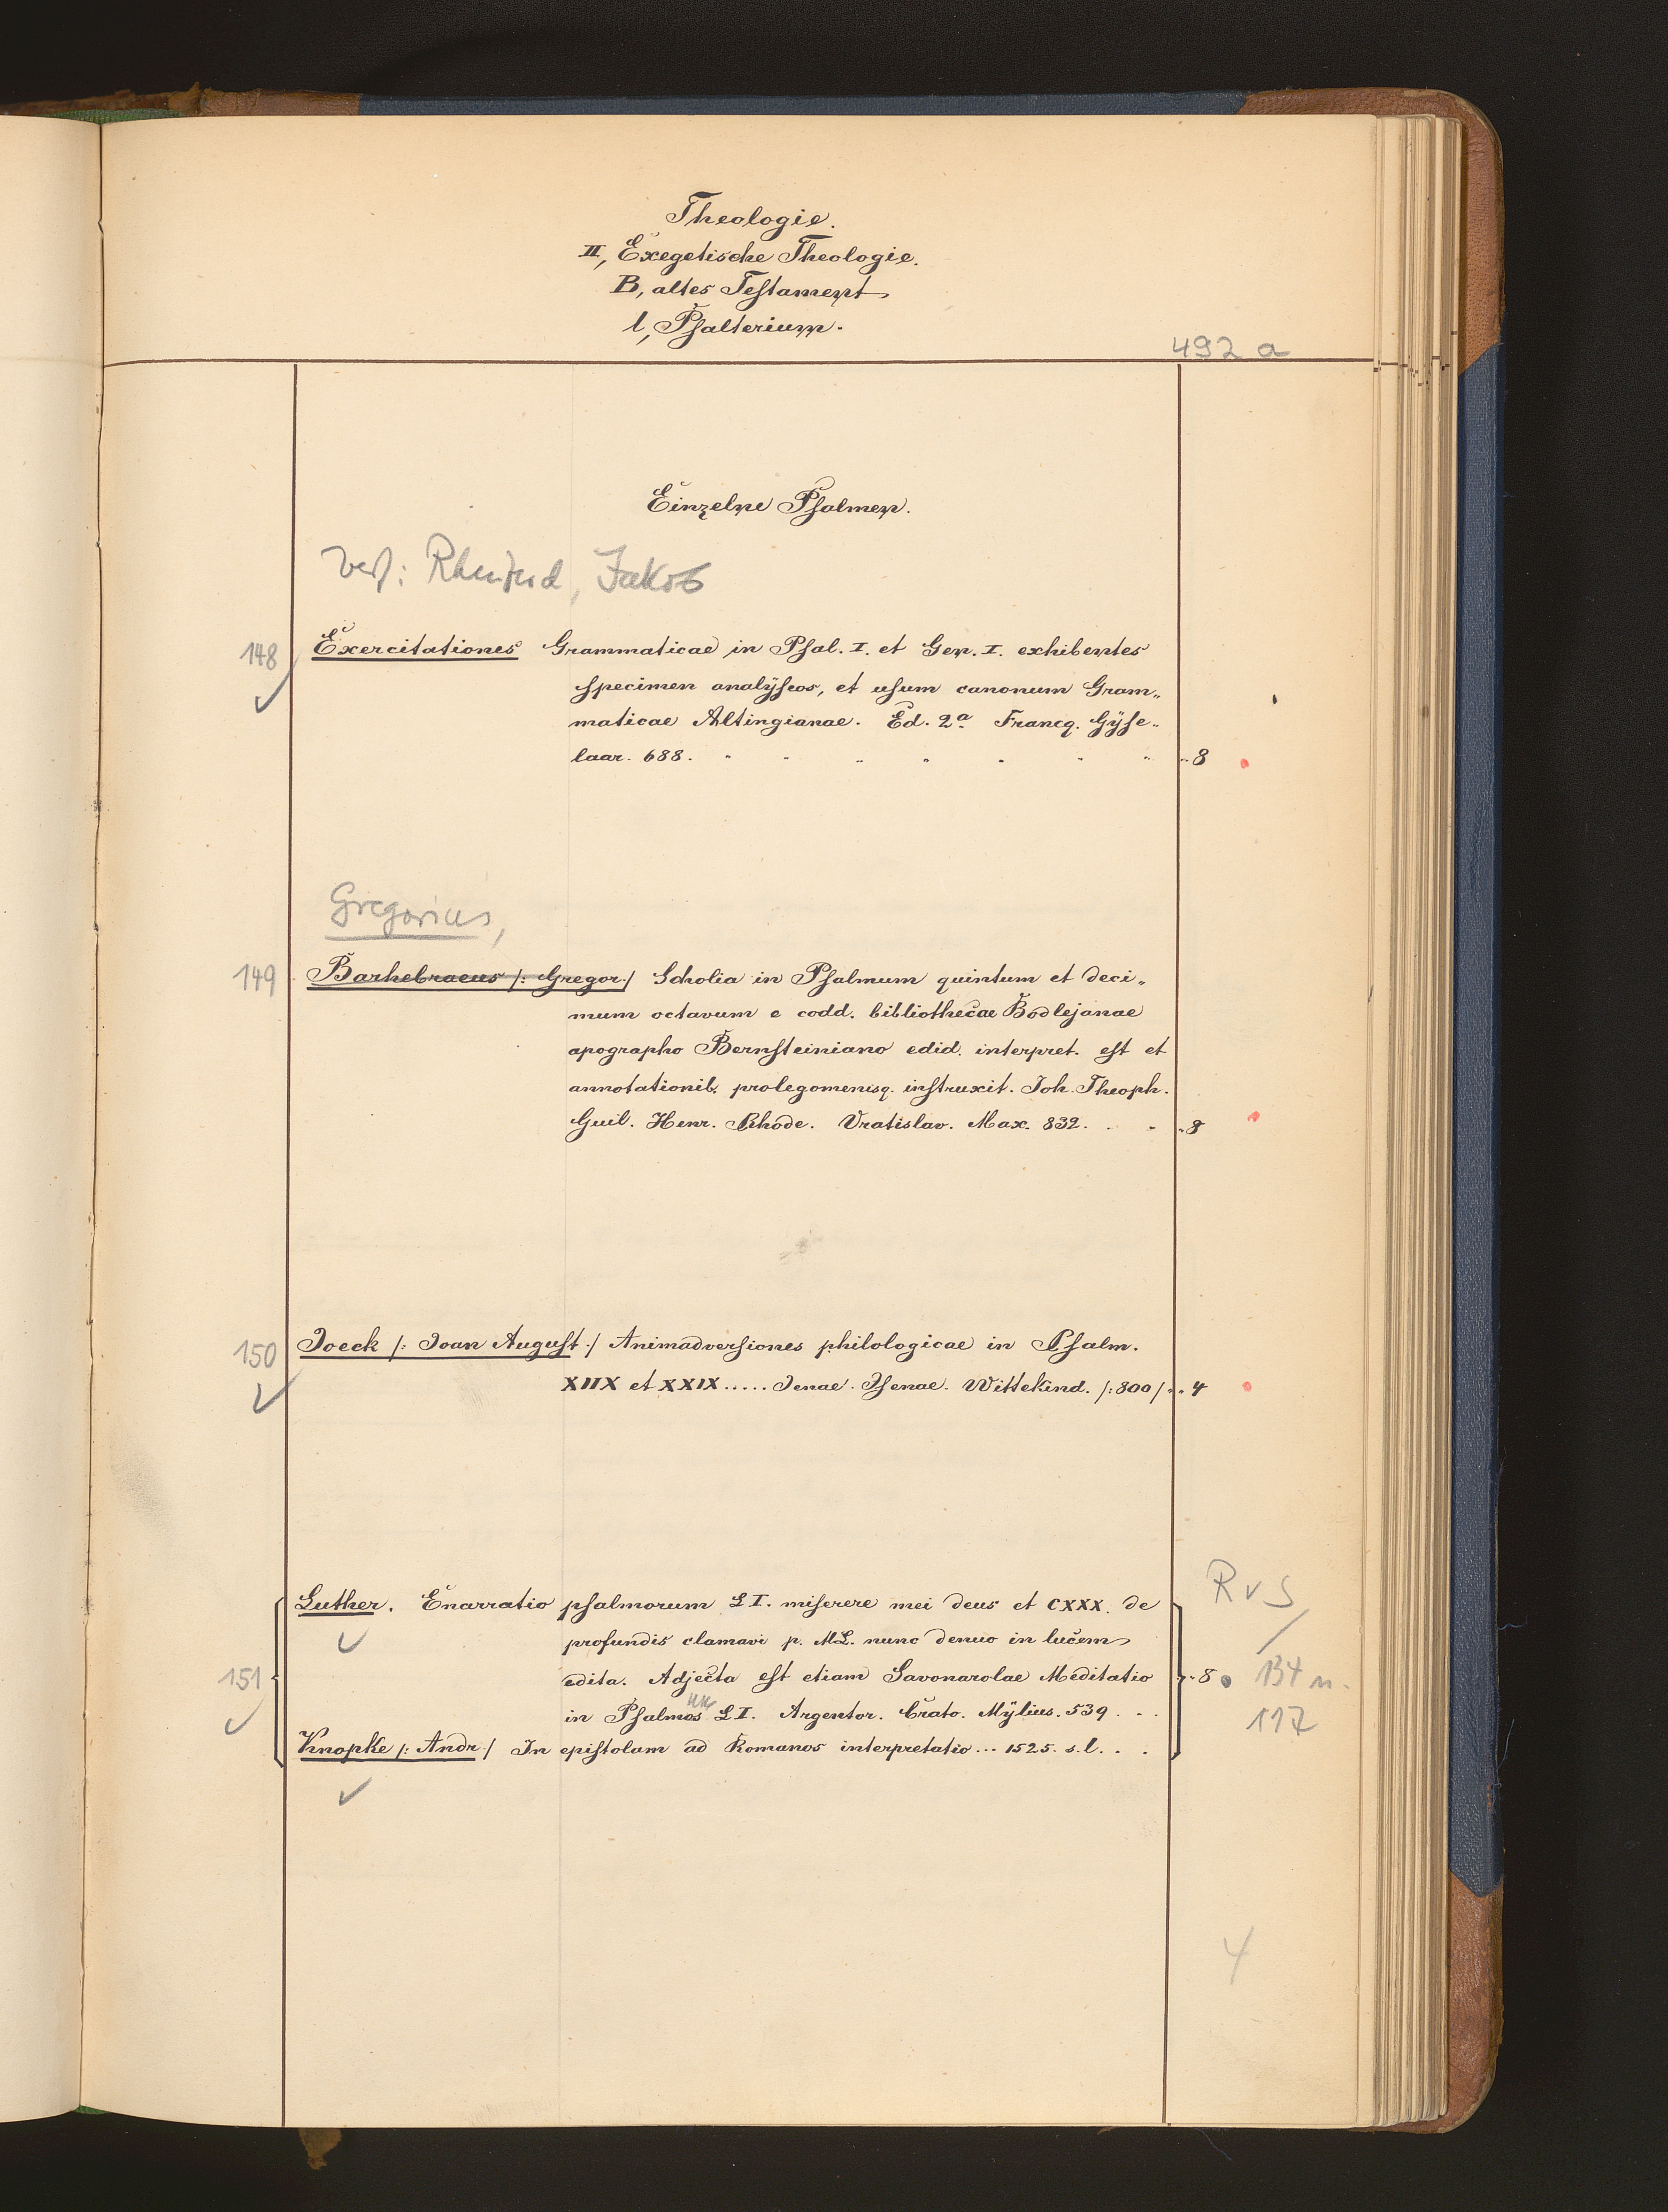 Theologie.
II, Exegetische Theologie.
B, altes Testament
l, Psalterium.
492 a
Einzelne Psalmen.
Verf: Rhenferd, Jakob
148 Exercitationes Grammaticae in Psal. I. et Gen. I. exhibentes
specimen analÿseos, et usum canonum Gram„
maticae Altingianae. Ed. 2a. Francq. Gÿse„
laar. 688. „ 8
Gregorius,
149 Barhebraeus /: Gregor:/ Scholia in Psalmum quintum et deci„
mum octavum e codd. bibliothecae Bodlejanae
apographo Bernsteiniano edid. interpret. est et
annotationib. prolegomenisq. instruxit. Joh. Theoph.
Guil. Henr. Rhode. Vratislav. Max. 832. . . „ 8
150 Joeck /: Joan August :/ Animadversiones philologicae in Psalm.
XIIX et XXIX..... Jenae. Isenae. Wittekind. /:800/ „ 4
R v S
Luther. Enarratio psalmorum LI. miserere mei deus et CXXX. de
profundis clamavi p. ML. nunc denuo in lucem
151 edita. Adjecta est etiam Savonarolae Meditatio „ 8 134 n.
in Psalmos um LI. Argentor. Crato. Mÿlius. 539 . . . 117
Knopke /: Andr:/ In epistolam ad Romanos interpretatio... 1525. s.l. . .
4